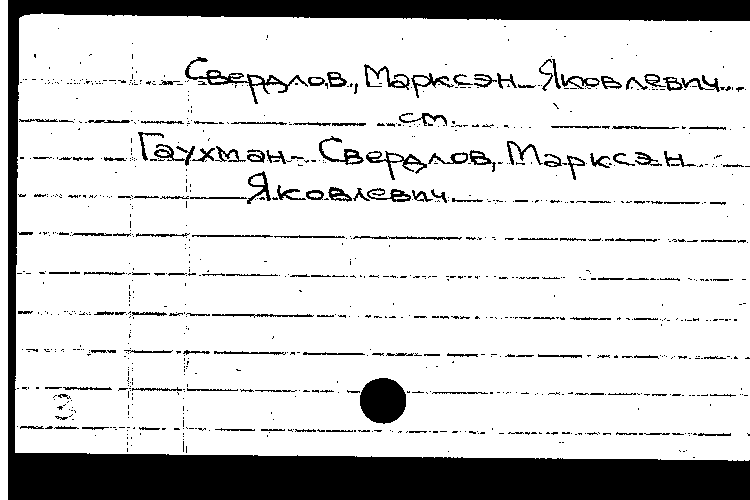 Свердлов, Марксэн Яковлевич
ст.
Гаухман-Свердлов, Марксэн
Яковлевич.
3